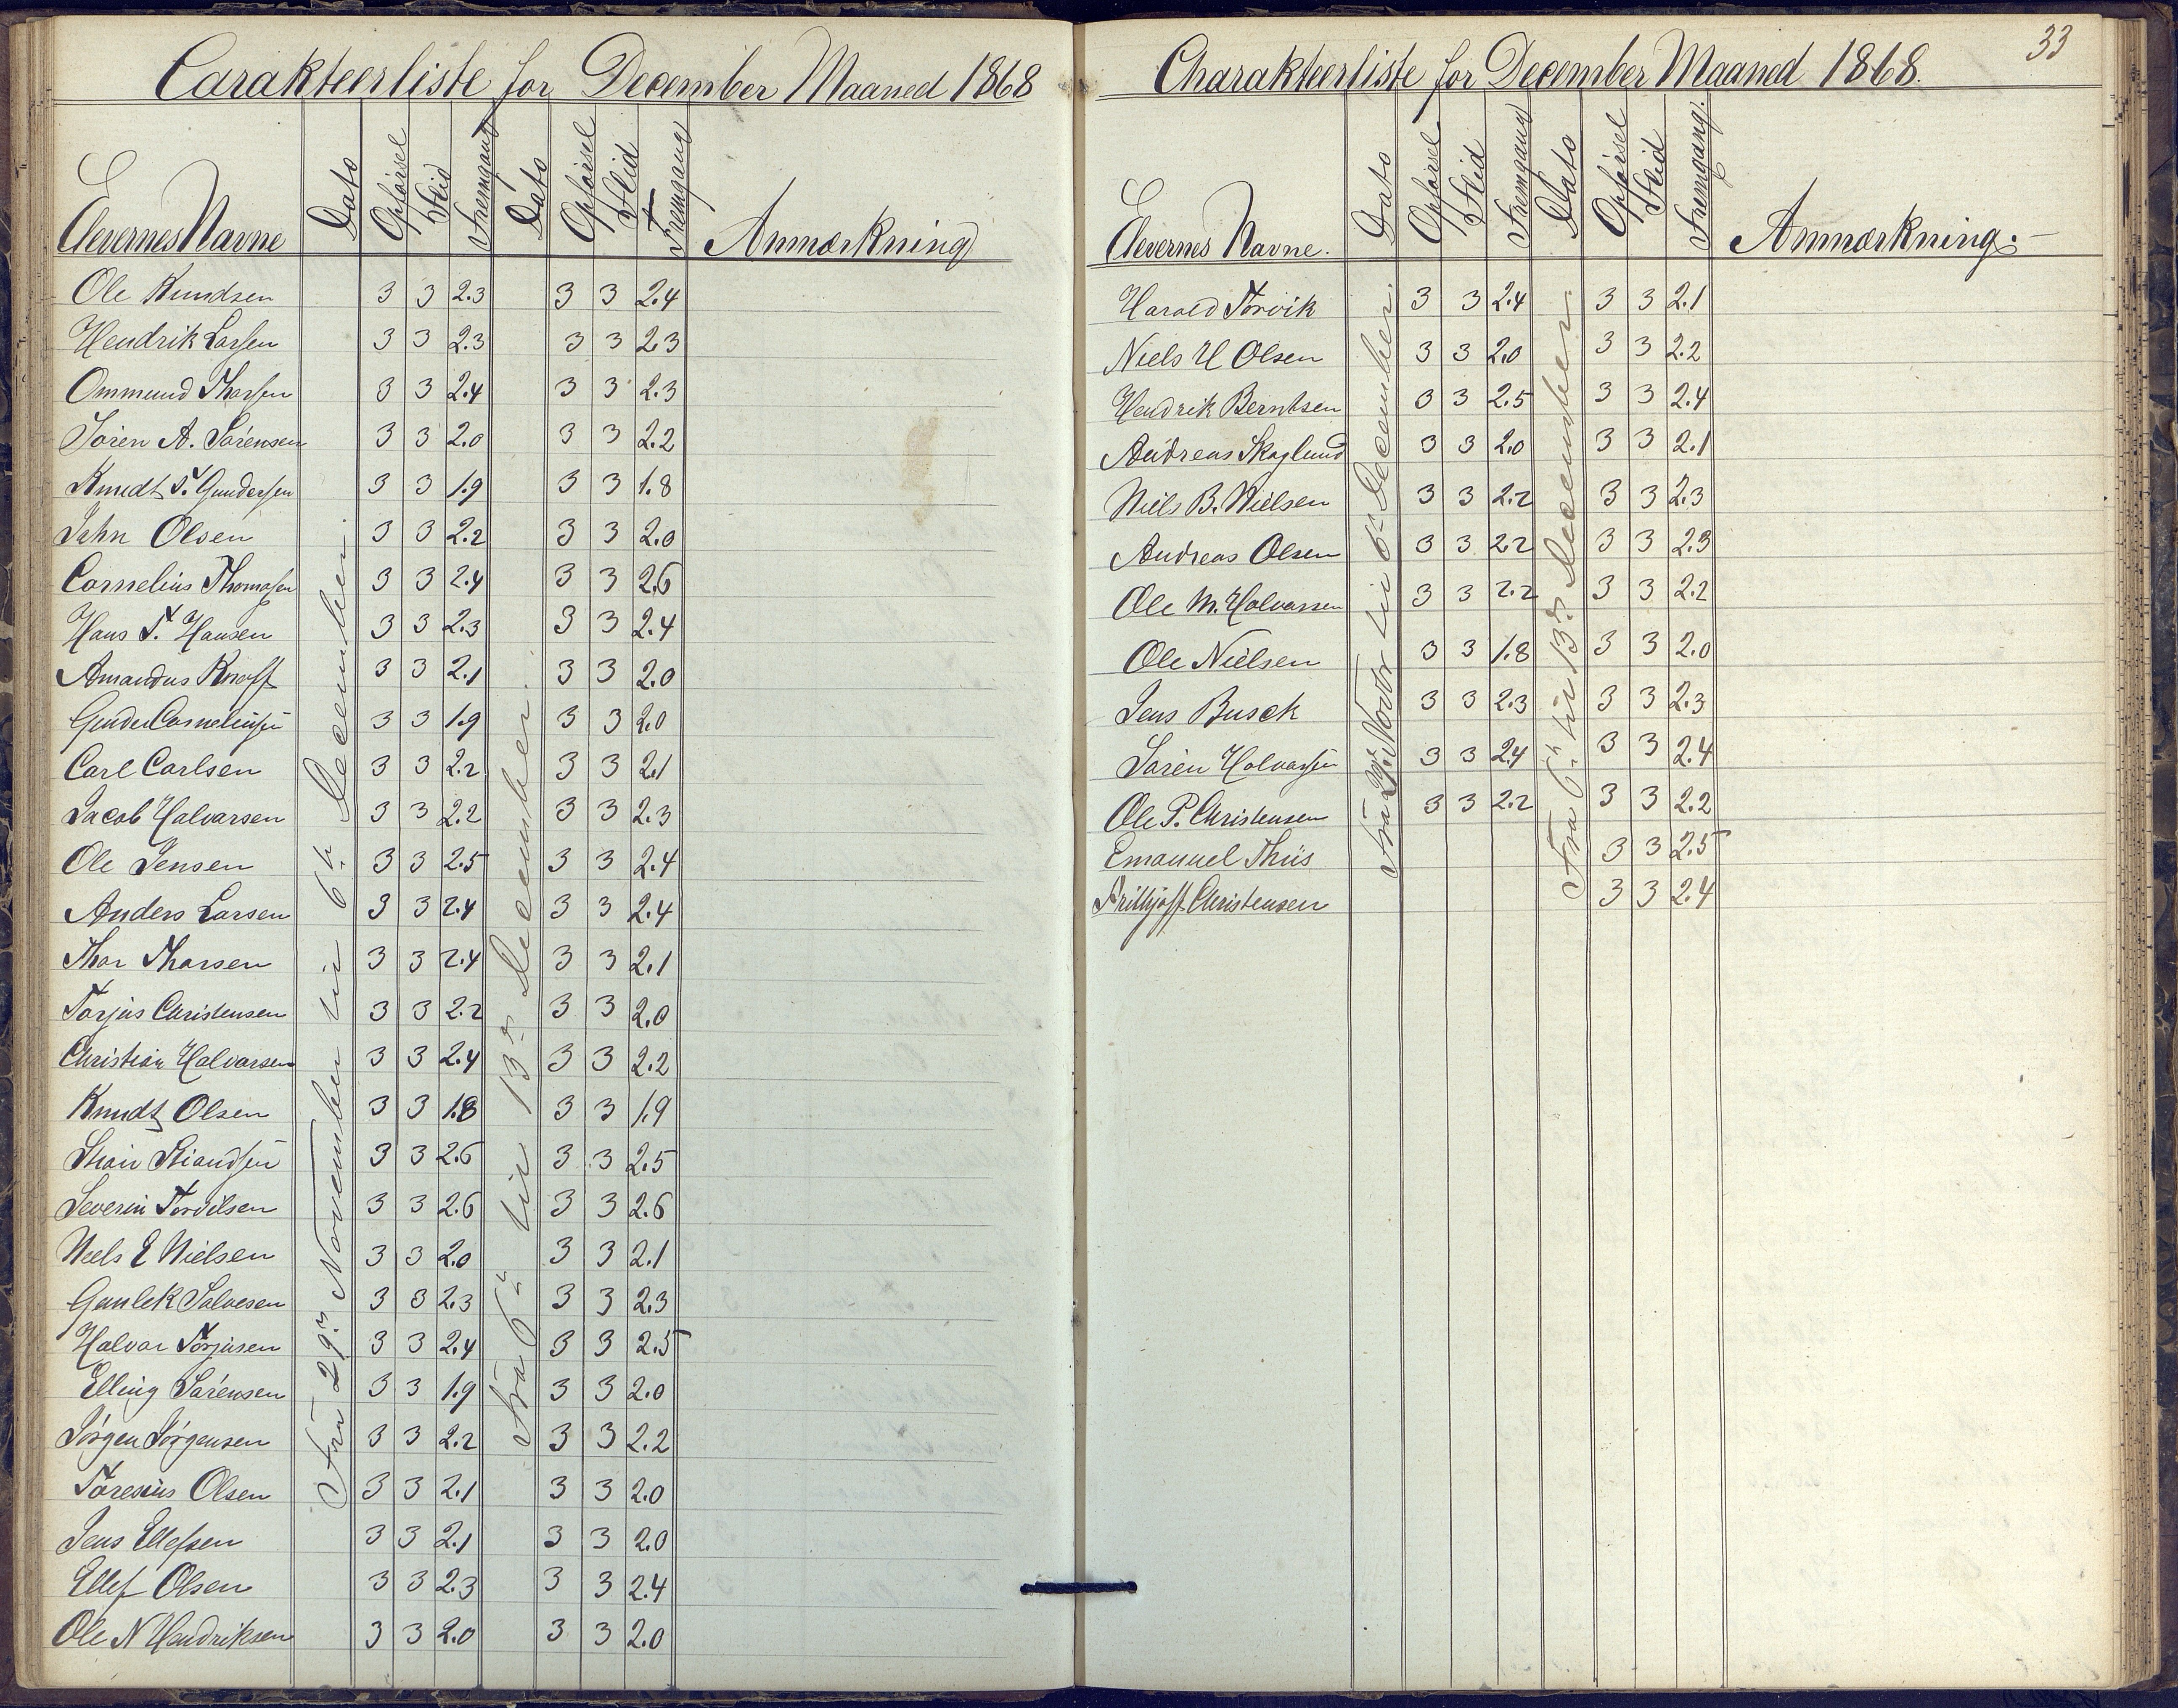 Carakteerliste for December Maaned 1868
Elevernes Navne Dato Opførsel Flid Fremgang Dato Opførsel Flid Fremgang Anmærkning
Fra 29de November til 6te December.
Fra 6te til 13de December.
Ole Knudsen 3 3 2.3 3 3 2.4
Hendrik Larsen 3 3 2.3 3 3 2.3
Ommund Thorsen 3 3 2.4 3 3 2.3
Søren A. Sørensen 3 3 2.0 3 3 2.2
Knudt T. Gundersen 3 3 1.9 3 3 1.8
John Olsen 3 3 2.2 3 3 2.0
Cornelius Thomasen 3 3 2.4 3 3 2.6
Hans T. Hansen 3 3 2.3 3 3 2.4
Amandus Knoff 3 3 2.1 3 3 2.0
Gunder Corneliusen 3 3 1.9 3 3 2.0
Carl Carlsen 3 3 2.2 3 3 2.1
Jacob Halvorsen 3 3 2.2 3 3 2.3
Ole Jensen 3 3 2.5 3 3 2.4
Anders Larsen 3 3 2.4 3 3 2.4
Thor Thorsen 3 3 2.4 3 3 2.1
Torjus Christensen 3 3 2.2 3 3 2.0
Christian Halvorsen 3 3 2.4 3 3 2.2
Knudt Olsen 3 3 1.8 3 3 1.9
3 3 2.6 3 3 2.5
Severin Tordilsen 3 3 2.6 3 3 2.6
Niels E Nielsen 3 3 2.0 3 3 2.1
Gunlek Salvesen 3 3 2.3 3 3 2.3
Halvor Torjusen 3 3 2.4 3 3 2.5
Elling Sørensen 3 3 1.9 3 3 2.0
Jørgen Jørgensen 3 3 2.2 3 3 2.2
Toresius Olsen 3 3 2.1 3 3 2.0
Jens Ellefsen 3 3 2.1 3 3 2.0
Ellef Olsen 3 3 2.3 3 3 2.4
Ole N Hendriksen 3 3 2.0 3 3 2.0
33
Charakteerliste for December Maaned 1868.
Elevernes Navne. Dato Opførsel Flid Fremgang Dato Opførsel Flid Fremgang. Anmærkning.
Fra 29de Novbr til 6te December.
Fra 6te til 13de December.
Harald Torvik 3 3 2.4 3 3 2.1
Niels H Olsen 3 3 2.0 3 3 2.2
Hendrik Berntsen 3 3 2.5 3 3 2.4
Andreas Skoglund 3 3 2.0 3 3 2.1
Niels B. Nielsen 3 3 2.2 3 3 2.3
Andreas Olsen 3 3 2.2 3 3 2.3
Ole M. Halvorsen 3 3 2.2 3 3 2.2
Ole Nielsen 3 3 1.8 3 3 2.0
Jens Busck 3 3 2.3 3 3 2.3
Søren Halvorsen 3 3 2.4 3 3 2.4
Ole P. Christensen 3 3 2.2 3 3 2.2
Emanuel Thiis 3 3 2.5
Frithjoff Christensen 3 3 2.4